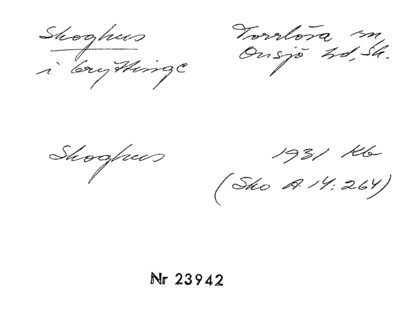 Skoghus Torrlösa sn,
i bryttinge Onsjö hd, Sk.
Skoghus 1931 Kb
(Sko A 14:264)
Nr 23942